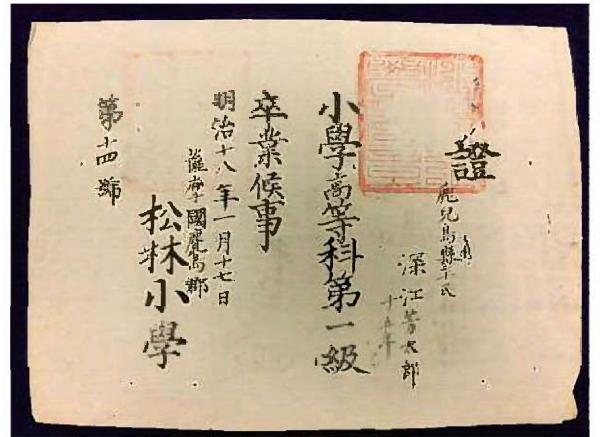 證
鹿兒島縣平民
深江芳太郎
十五年
小學高等科第一級
卒業候事
明治十八年一月十七日
薩摩國鹿兒島郡
松林小學
第十四號